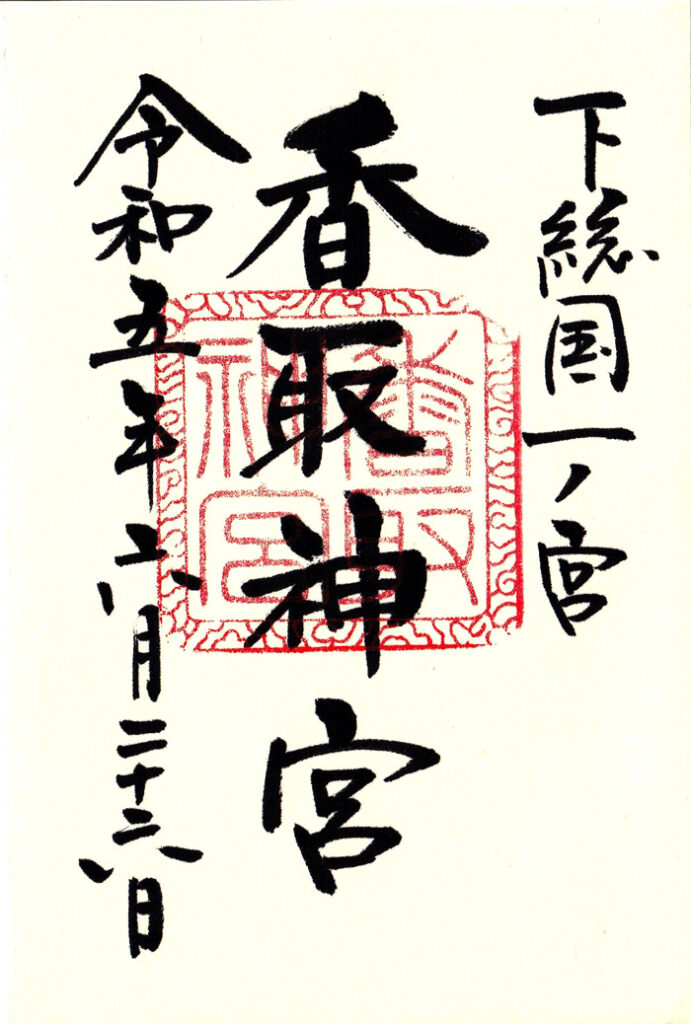 下総国一ノ宮
香取神宮
令和五年六月二十六日
香取
神宮